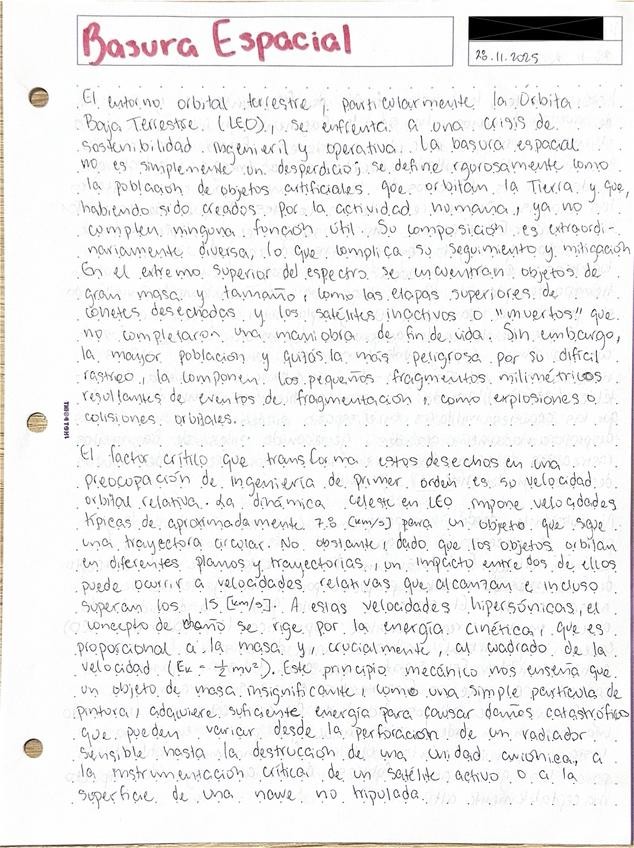 Basura Espacial
28.11.2025
El entorno orbital terrestre, particularmente la Órbita
Baja Terrestre (LEO), se enfrenta a una crisis de
sostenibilidad ingenieril y operativa. La basura espacial
no es simplemente un desperdicio; se define rigurosamente como
la población de objetos artificiales que orbitan la Tierra y que,
habiendo sido creados por la actividad humana, ya no
cumplen ninguna función útil. Su composición es extraordi-
nariamente diversa, lo que complica su seguimiento y mitigación
En el extremo superior del espectro se encuentran objetos de
gran masa y tamaño, como las etapas superiores de
cohetes desechadas y los satélites inactivos o "muertos" que
no completaron una maniobra de fin de vida. Sin embargo,
la mayor población y quizás la más peligrosa por su difícil
rastreo, la componen los pequeños fragmentos milimétricos
resultantes de eventos de fragmentación, como explosiones o
colisiones orbitales.
El factor crítico que transforma estos desechos en una
preocupación de ingeniería de primer orden es su velocidad
orbital relativa. La dinámica celeste en LEO impone velocidades
típicas de aproximadamente 7.8 [km/s] para un objeto que sigue
una trayectora circular. No obstante, dado que los objetos orbitan
en diferentes planos y trayectorias, un impacto entre dos de ellos
puede ocurrir a velocidades relativas que alcanzan e incluso
superan los 15 [km/s]. A estas velocidades hipersónicas, el
concepto de daño se rige por la energía cinética, que es
proporcional a la masa y, crucialmente, al cuadrado de la
velocidad (Ek = ½ mv²). Este principio mecánico nos enseña que
un objeto de masa insignificante, como una simple partícula de
pintura, adquiere suficiente energía para causar daños catastróficos
que pueden variar desde la perforación de un radiador
sensible hasta la destrucción de una unidad aviónica, a
la instrumentación crítica de un satélite activo o a la
superficie de una nave no tripulada.